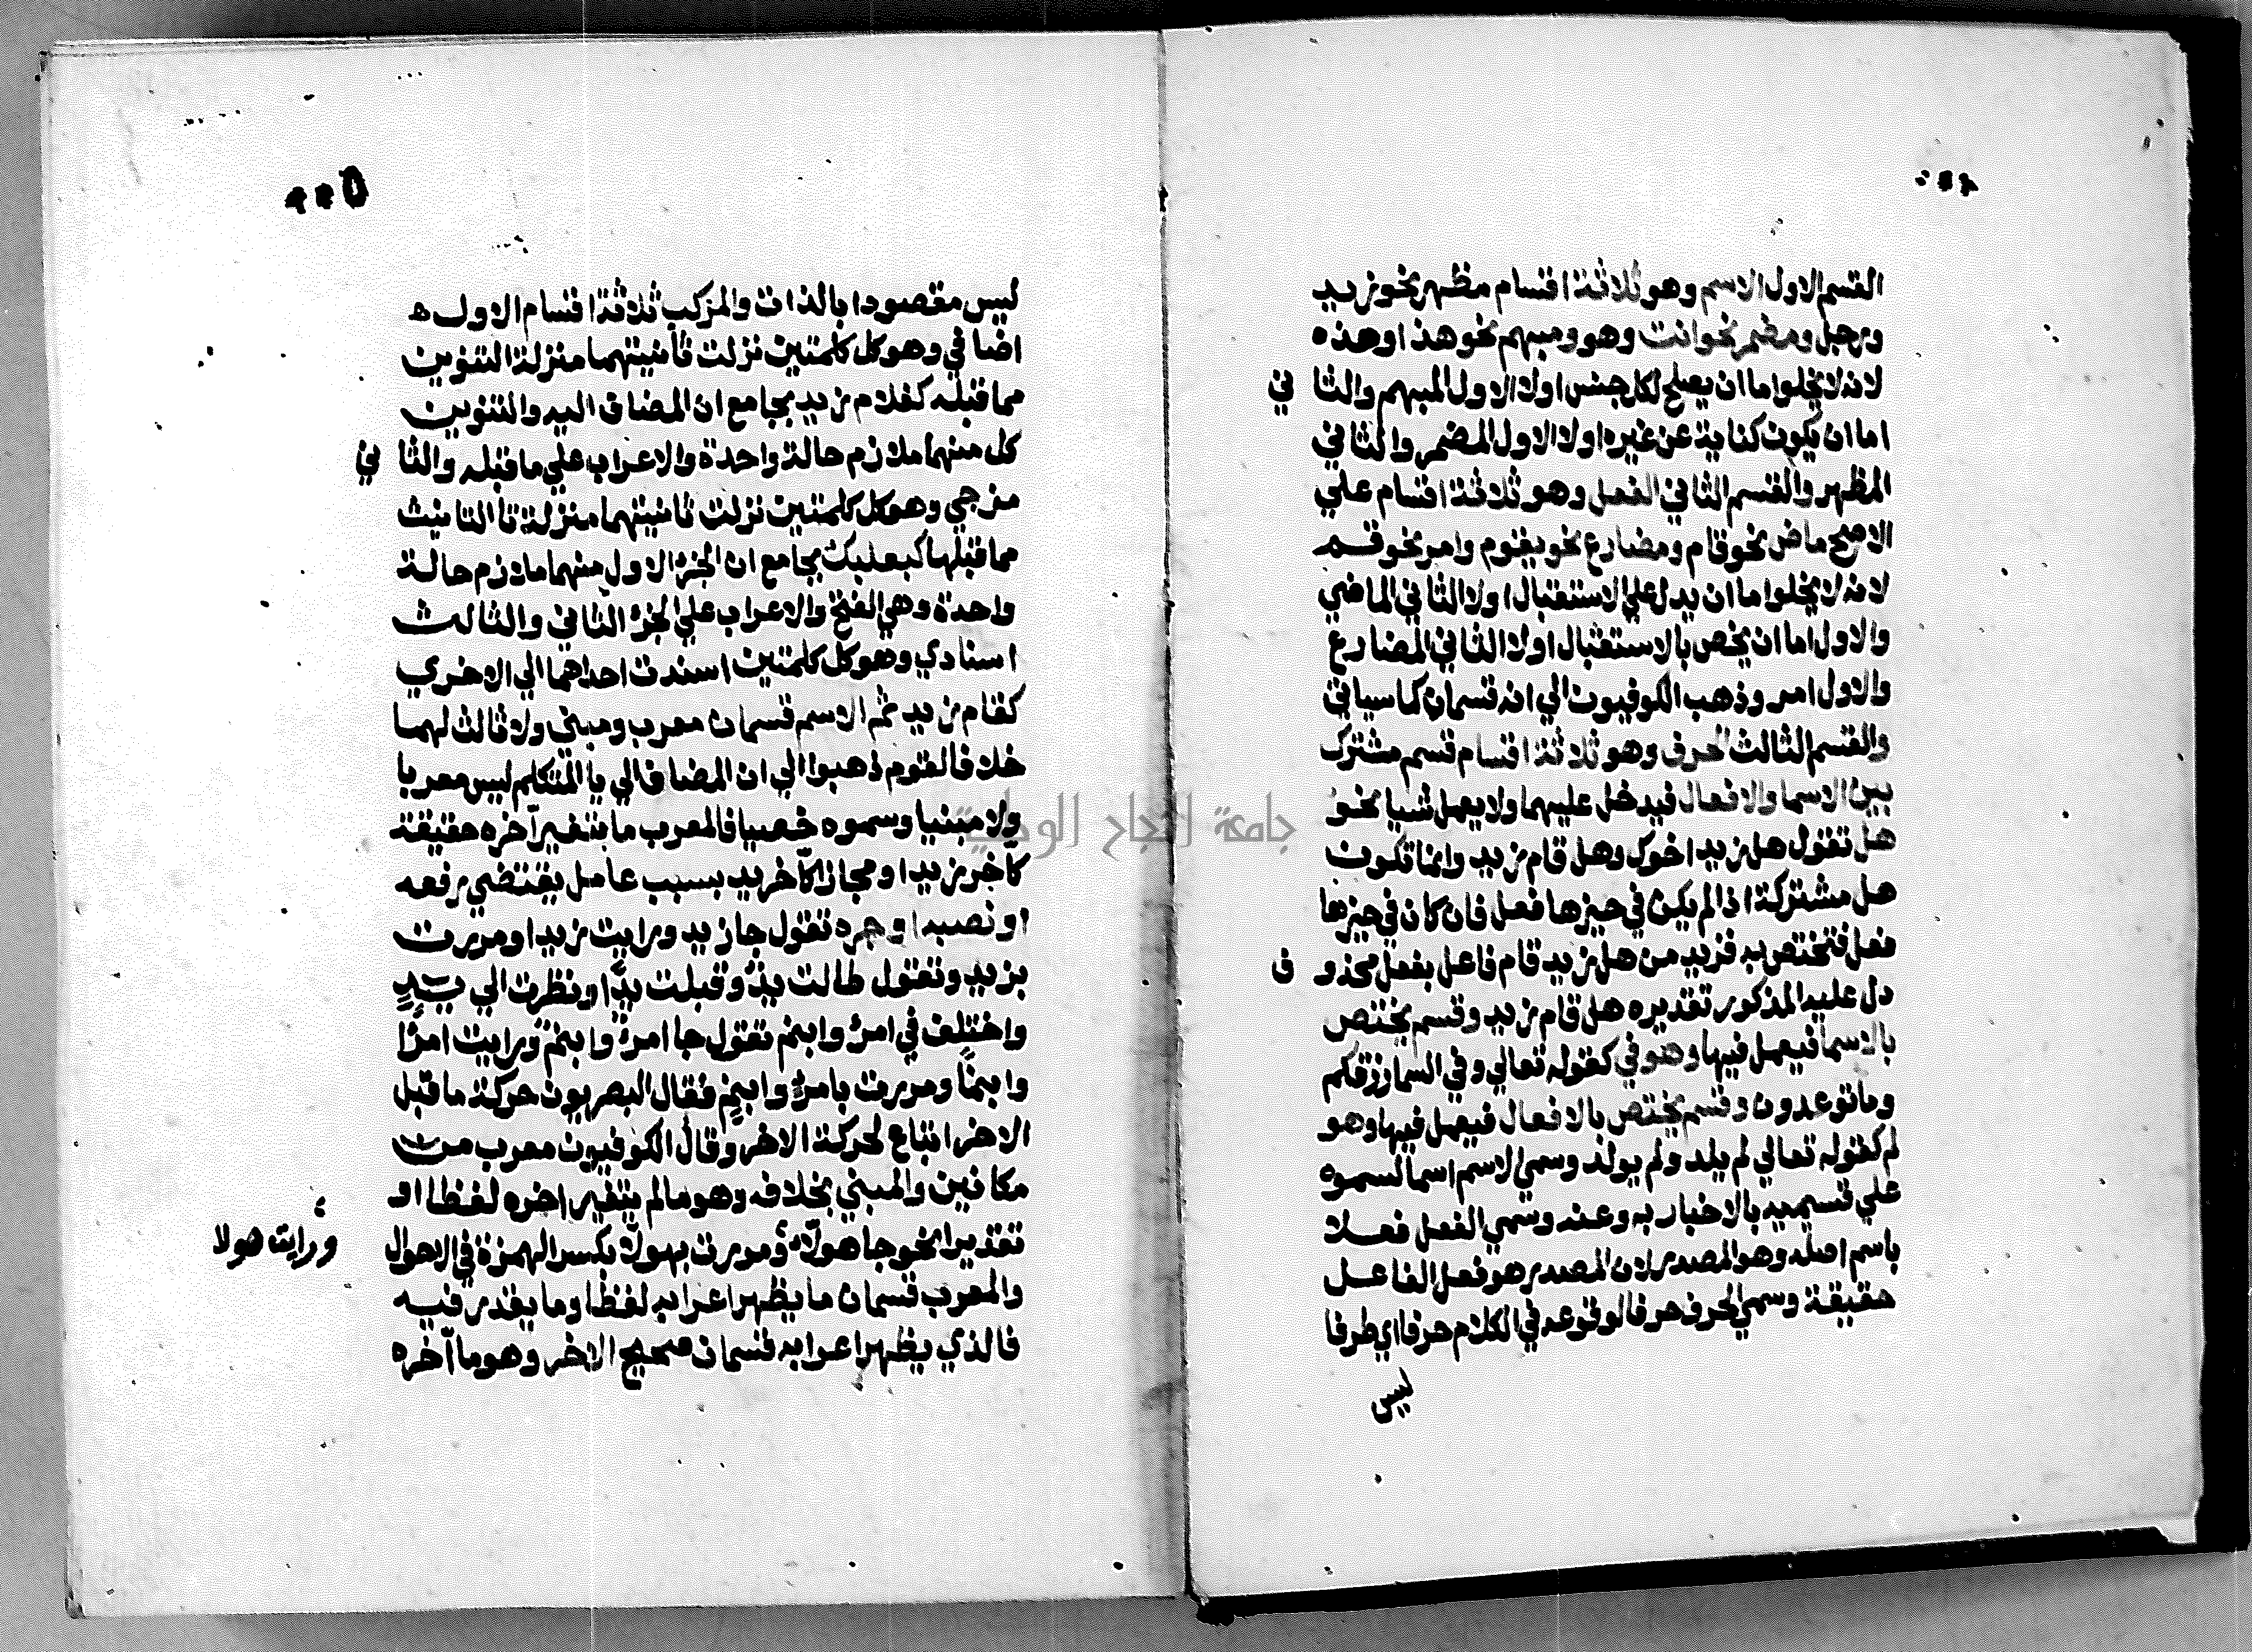 القسم الاول الاسم وهو ثلاثة اقسام مظهر نحو زيد
ورجل ومضمر نحو انت وهو ومبهم نحو هذا وهذه
لانه لا يخلو اما ان يصلح لكل جنس اولا الاول المبهم والثاني
اما ان يكون كناية عن غيره اولا الاول المضمر والثاني
المظهر والقسم الثاني الفعل وهو ثلاثة اقسام علي
الاصح ماض نحو قام ومضارع نحو يقوم وامر نحو قم
لانه لا يخلو اما ان يدل علي الاستقبال اولا الثاني الماضي
والاول اما ان يختص بالاستقبال اولا الثاني المضارع
والاول امر وذهب الكوفيون الي انه قسمان كما سياتي
والقسم الثالث الحرف وهو ثلاثة اقسام قسم مشترك
بين الاسما والافعال فيدخل عليهما ولا يعمل شيا نحو
هل تقول هل زيد اخوك وهل قام زيد وانما تكون
هل مشتركة اذا لم يكن في حيزها فعل فان كان في حيزها
فعل فتختص به فزيد من هل زيد قام فاعل بفعل محذوف
دل عليه المذكور تقديره هل قام زيد وقسم يختص
بالاسما فيعمل فيها وهو في كقوله تعالي وفي السما رزقكم
وما توعدون وقسم يختص بالافعال فيعمل فيها وهو
لم كقوله تعالي لم يلد ولم يولد وسمي الاسم اسما لسموه
علي قسيميه بالاخبار به وعنه وسمي الفعل فعلا
باسم اصله وهو المصدر لان المصدر هو فعل الفاعل
حقيقة وسمي الحرف حرفا لوقوعه في الكلام حرفا اي طرفا
ليس
ليس مقصودا بالذات والمركب ثلاثة اقسام الاول
اضافي وهو كل كلمتين نزلت ثانيتهما منزلة التنوين
مما قبله كغلام زيد بجامع ان المضاف اليه والتنوين
كل منهما ملازم حالة واحدة والاعراب علي ما قبله والثاني
مزجي وهو كل كلمتين نزلت ثانيتهما منزلة تا التانيث
مما قبلها كبعلبك بجامع ان الجزء الاول منهما ملازم حالة
واحدة وهي الفتح والاعراب علي الجزء الثاني والثالث
اسنادي وهو كل كلمتين اسندت احداهما الي الاخري
كقام زيد ثم الاسم قسمان معرب ومبني ولا ثالث لهما
خلافا لقوم ذهبوا الي ان المضاف الي يا المتكلم ليس معربا
ولا مبنيا وسموه خصيا فالمعرب ما يتغير آخره حقيقة
كآخر زيد او مجازا كآخر يد بسبب عامل يقتضي رفعه
او نصبه او جره تقول جا زيد ورايت زيدا ومررت
بزيد وتقول طالت يدٌ وقبلت يدًا ونظرت الي يدٍ
واختلف في امرئ وابنم تقول جا امرؤ وابنم ورايت امرًا
وابنمًا ومررت بامرئ وابنمٍ فقال البصريون حركة ما قبل
الاخر اتباع لحركة الاخر وقال الكوفيون معرب من
مكانين والمبني بخلافه وهو ما لم يتغير اخره لفظا او
تقديرا نحو جا هولاء ومررت بهولاء بكسر الهمزة في الاحوال
ورايت هولا
والمعرب قسمان ما يظهر اعرابه لفظا وما يقدر فيه
فالذي يظهر اعرابه قسمان صحيح الاخر وهو ما آخره
جامعة النجاح الوطنية